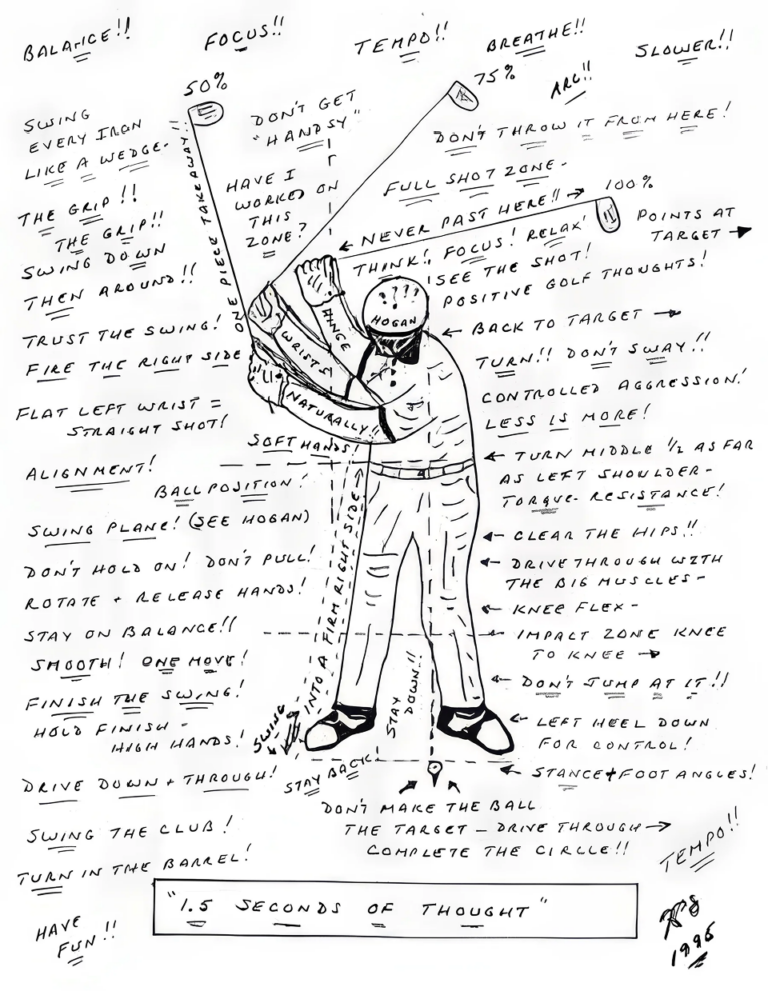 BALANCE!!
FOCUS!!
TEMPO!!
BREATHE!!
SLOWER!!
50%
75%
ARC!!
SWING
EVERY IRON
LIKE A WEDGE-
DON'T GET
"HANDSY"
DON'T THROW IT FROM HERE!
THE GRIP!!
THE GRIP!!
SWING DOWN
THEN AROUND!!
TRUST THE SWING!
FIRE THE RIGHT SIDE
ONE PIECE TAKEAWAY
HAVE I
WORKED ON
THIS
ZONE?
FULL SHOT ZONE-
100%
← NEVER PAST HERE!! →
POINTS AT
TARGET →
THINK! FOCUS! RELAX!
SEE THE SHOT!
POSITIVE GOLF THOUGHTS!
????
HOGAN
HINGE
WRISTS
NATURALLY!!
← BACK TO TARGET →
TURN!! DON'T SWAY!!
CONTROLLED AGGRESSION!
LESS IS MORE!
FLAT LEFT WRIST =
STRAIGHT SHOT!
SOFT HANDS
ALIGNMENT!
BALL POSITION!
← TURN MIDDLE 1/2 AS FAR
AS LEFT SHOULDER-
TORQUE- RESISTANCE!
SWING PLANE! (SEE HOGAN)
DON'T HOLD ON! DON'T PULL!
ROTATE + RELEASE HANDS!
STAY ON BALANCE!!
SMOOTH! ONE MOVE!
FINISH THE SWING!
HOLD FINISH -
HIGH HANDS!
DRIVE DOWN + THROUGH!
SWING THE CLUB!
TURN IN THE BARREL!
HAVE
FUN!!
SWING
INTO A FIRM RIGHT SIDE
STAY DOWN!!
STAY BACK
← CLEAR THE HIPS!!
← DRIVE THROUGH WITH
THE BIG MUSCLES-
← KNEE FLEX-
← IMPACT ZONE KNEE
TO KNEE →
← DON'T JUMP AT IT!!
← LEFT HEEL DOWN
FOR CONTROL!
← STANCE + FOOT ANGLES!
DON'T MAKE THE BALL
THE TARGET - DRIVE THROUGH →
COMPLETE THE CIRCLE!!
TEMPO!!
"1.5 SECONDS OF THOUGHT"
1996